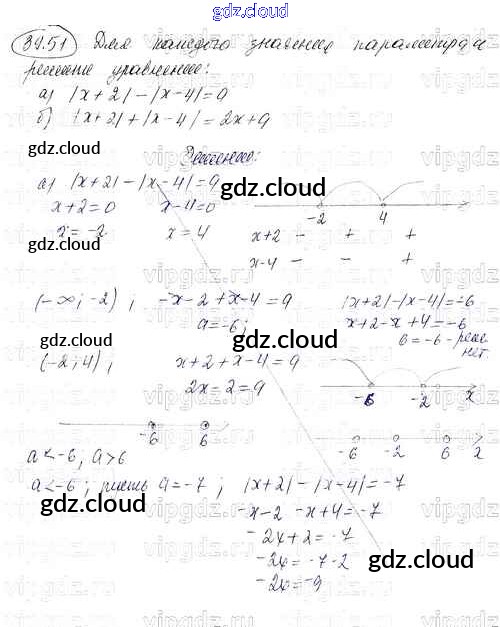 gdz.cloud
39.51 Для каждого значения параметра a
решите уравнение:
а) |x+2|-|x-4|=a
б) |x+2|+|x-4|=2x+a
gdz.cloud
Решение:
а) |x+2|-|x-4|=a gdz.cloud
x+2=0 x-4=0
gdz.cloud -2 4
x=-2 x=4 x+2 - + +
x-4 - - +
(-∞;-2), -x-2+x-4=a |x+2|-|x-4|=-6
a=-6; x+2-x+4=-6
gdz.cloud gdz.cloud
6=-6 - реше
нет.
(-2;4), x+2+x-4=a
2x-2=a
-6 -2 x
-6 6 -6 -2 6 2
a<-6, a>6
a<-6; пусть a=-7; |x+2|-|x-4|=-7
gdz.cloud -x-2-x+4=-7
-2x+2=-7
-2x=-7-2 gdz.cloud
-2x=-9